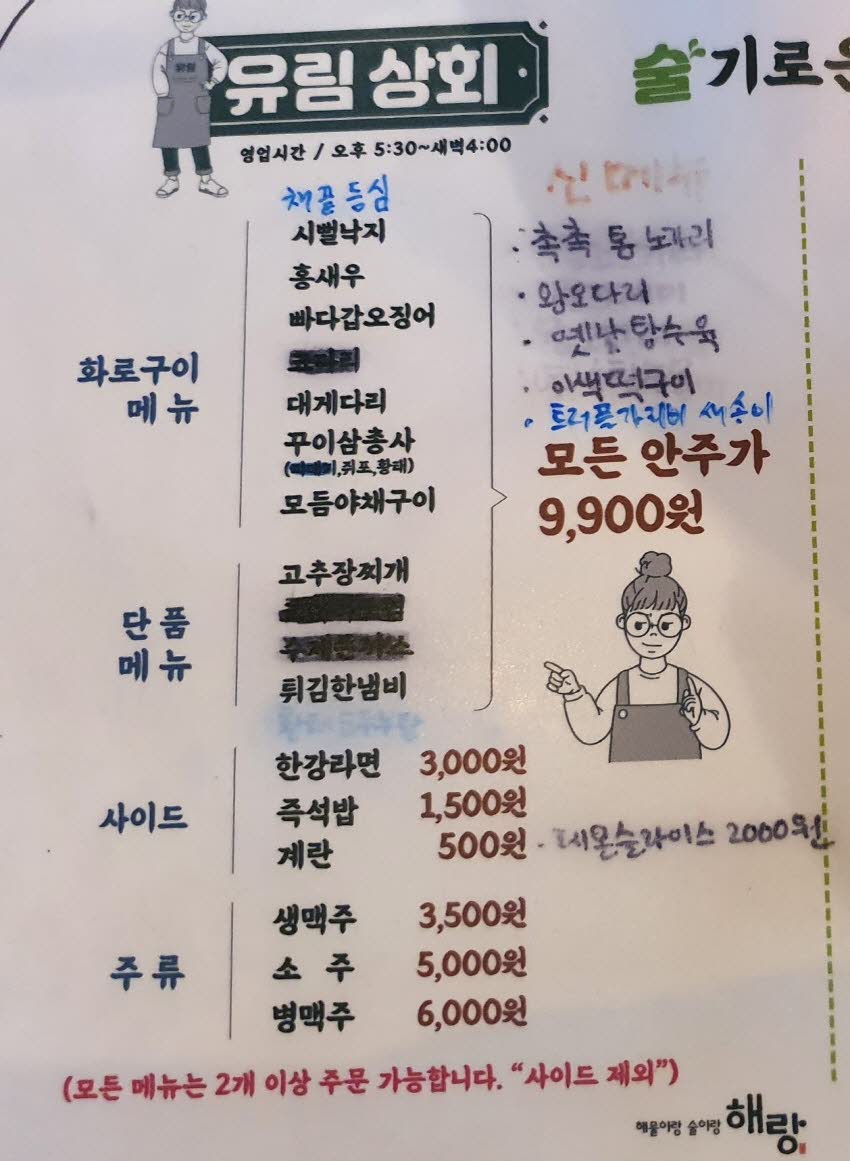 유림
유림 상회
영업시간 / 오후 5:30~새벽4:00
술기로운
채끝등심
시뻘낙지
홍새우
빠다갑오징어
화로구이
메뉴
대게다리
꾸이삼총사
쥐포,황태)
모듬야채구이
신
· 촉촉 통 노가리
· 왕오다리
· 옛날탕수육
· 이색떡구이
· 트러플가리비 새송이
모든 안주가
9,900원
단품
메뉴
고추장찌개
튀김한냄비
사이드
한강라면 3,000원
즉석밥 1,500원
계란 500원
· 레몬슬라이스 2000원
주류
생맥주 3,500원
소 주 5,000원
병맥주 6,000원
(모든 메뉴는 2개 이상 주문 가능합니다. “사이드 제외”)
해물이랑 술이랑 해랑